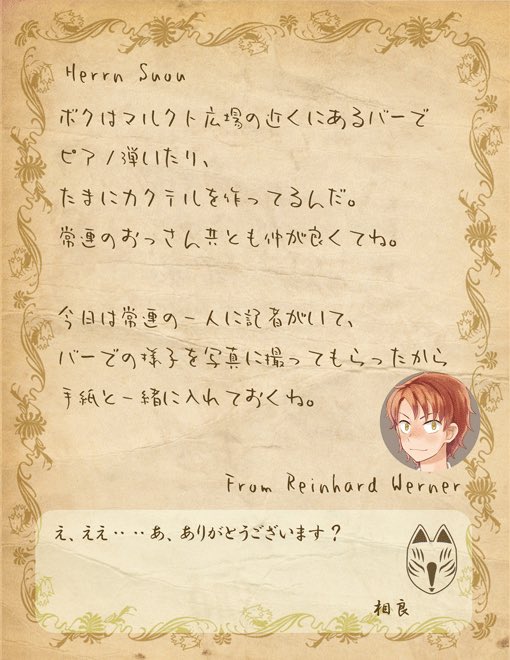 Herrn Suou
ボクはマルクト広場の近くにあるバーで
ピアノ弾いたり、
たまにカクテルを作ってるんだ。
常連のおっさん共とも仲が良くてね。
今日は常連の一人に記者がいて、
バーでの様子を写真に撮ってもらったから
手紙と一緒に入れておくね。
From Reinhard Werner
え、ええ‥‥あ、ありがとうございます？
相良